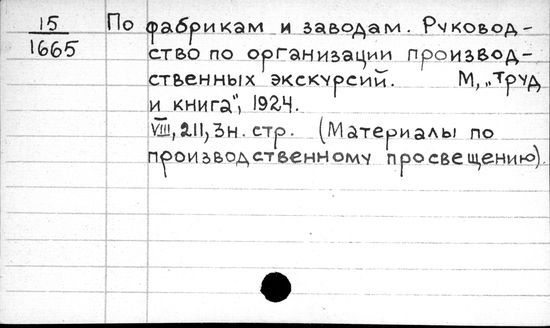 15
1665
По фабрикам и заводам. Руковод-
ство по организации производ-
ственных экскурсий. М, „Труд
и книга", 1924.
VIII, 211, 3н. стр. (Материалы по
производственному просвещению).